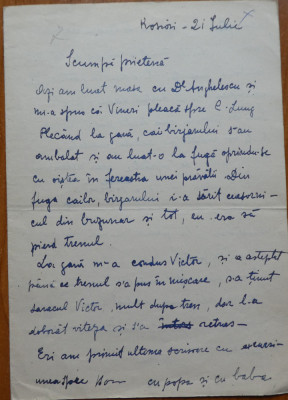 Rosiori - 21 Iulie
Scumpă prietenă
Azi am luat masa cu Dr Anghelescu și
m-a spus că Vineri pleacă spre C-Lung
Plecând la gară, caii birjarului s-au
ambalat și au luat-o la fugă oprindu-se
cu oiștea în fereastra unei prăvălii. Din
fuga cailor, birjarului i-a sărit ceasorni-
cul din buzunar și tot, eu era să
pierd trenul.
La gară m-a condus Victor, și a așteptat
până ce trenul s'a pus în mișcare, s-a ținut
săracul Victor, mult după tren, dar l-a
doborât viteza și s'a retras-
Eri am primit ultima scrisoare cu
cu popa și cu baba